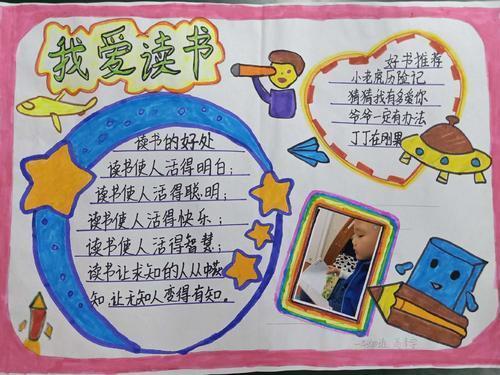 我爱读书
读书的好处
读书使人活得明白；
读书使人活得聪明；
读书使人活得快乐；
读书使人活得智慧；
读书让求知的人从中获
知，让无知人变得有知。
好书推荐
小老虎历险记
猜猜我有多爱你
爷爷一定有办法
丁丁在刚果